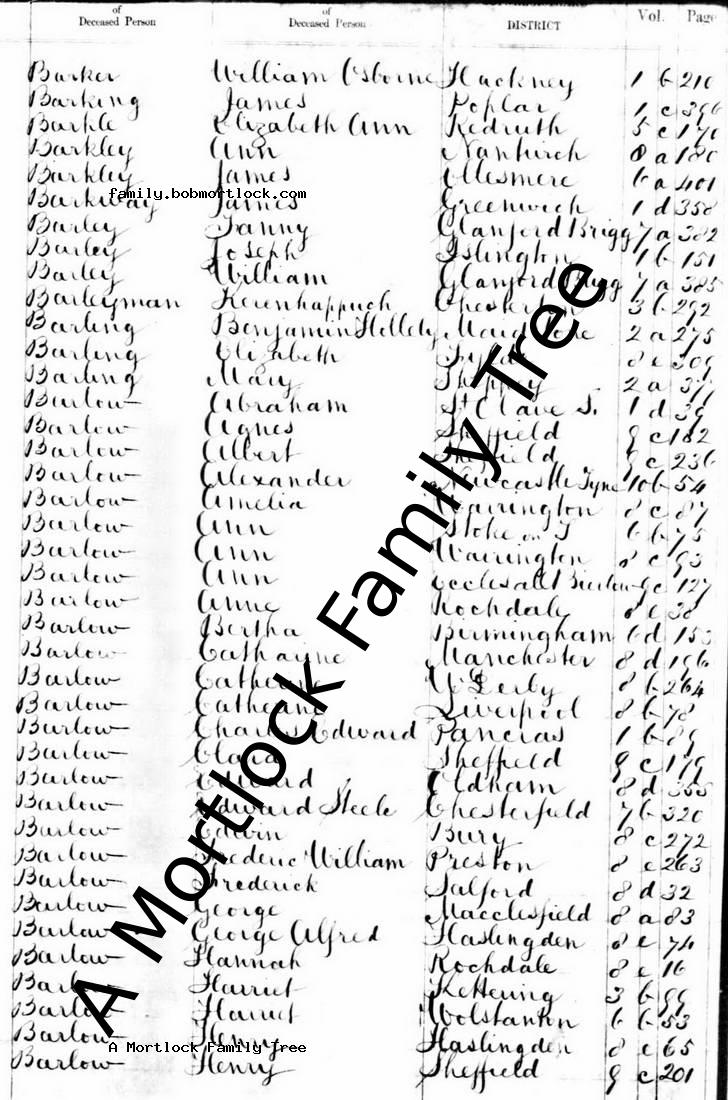 of of
Deceased Person Deceased Person DISTRICT Vol. Page
Barker William Osborne Hackney 1 b 210
Barking James Poplar 1 c 396
Barkle Elizabeth Ann Redruth 5 c 170
Barkley Ann Nantwich 8 a 180
Barkley James Ellesmere 6 a 401
family.bobmortlock.com
James Greenwich 1 d 358
Barley Fanny Glanford Brigg 7 a 382
Barley Joseph Islington 1 b 151
Barley William Glanford Brigg 7 a 385
Barleyman Kerenhappuch Chesterton 3 b 292
Barling Benjamin Maidstone 2 a 275
Barling Elizabeth Fylde 8 e
Barling Mary Sheppey 2 a
Barlow Abraham St Olave S. 1 d 39
Barlow Agnes Sheffield 9 c 182
Barlow Albert Sheffield 9 c 236
Barlow Alexander Newcastle Tyne 10 b 54
Barlow Amelia Warrington 8 c 87
Barlow Ann Stoke on T 6 b 75
Barlow Ann Warrington 8 c 93
Barlow Ann Ecclesall Bierlow 9 c 127
Barlow Anne Rochdale 8 e 38
Barlow Bertha Birmingham 6 d 153
Barlow Catharine Manchester 8 d 196
Barlow Catherine W Derby 8 b 264
Barlow Catherine Liverpool 8 b 78
Barlow Charles Edward Pancras 1 b 89
Barlow Clara Sheffield 9 c 179
Barlow Edward Oldham 8 d 355
Barlow Edward Steele Chesterfield 7 b 320
Barlow Edwin Bury 8 c 272
Barlow Frederic William Preston 8 e 263
Barlow Frederick Salford 8 d 32
Barlow George Macclesfield 8 a 83
Barlow George Alfred Haslingden 8 e 74
Barlow Hannah Rochdale 8 e 16
Barlow Harriet Kettering 3 b 99
Barlow Harriet Wolstanton 6 b 53
Barlow Henry Haslingden 8 e 65
A Mortlock Family Tree
Barlow Henry Sheffield 9 c 201
A Mortlock Family Tree